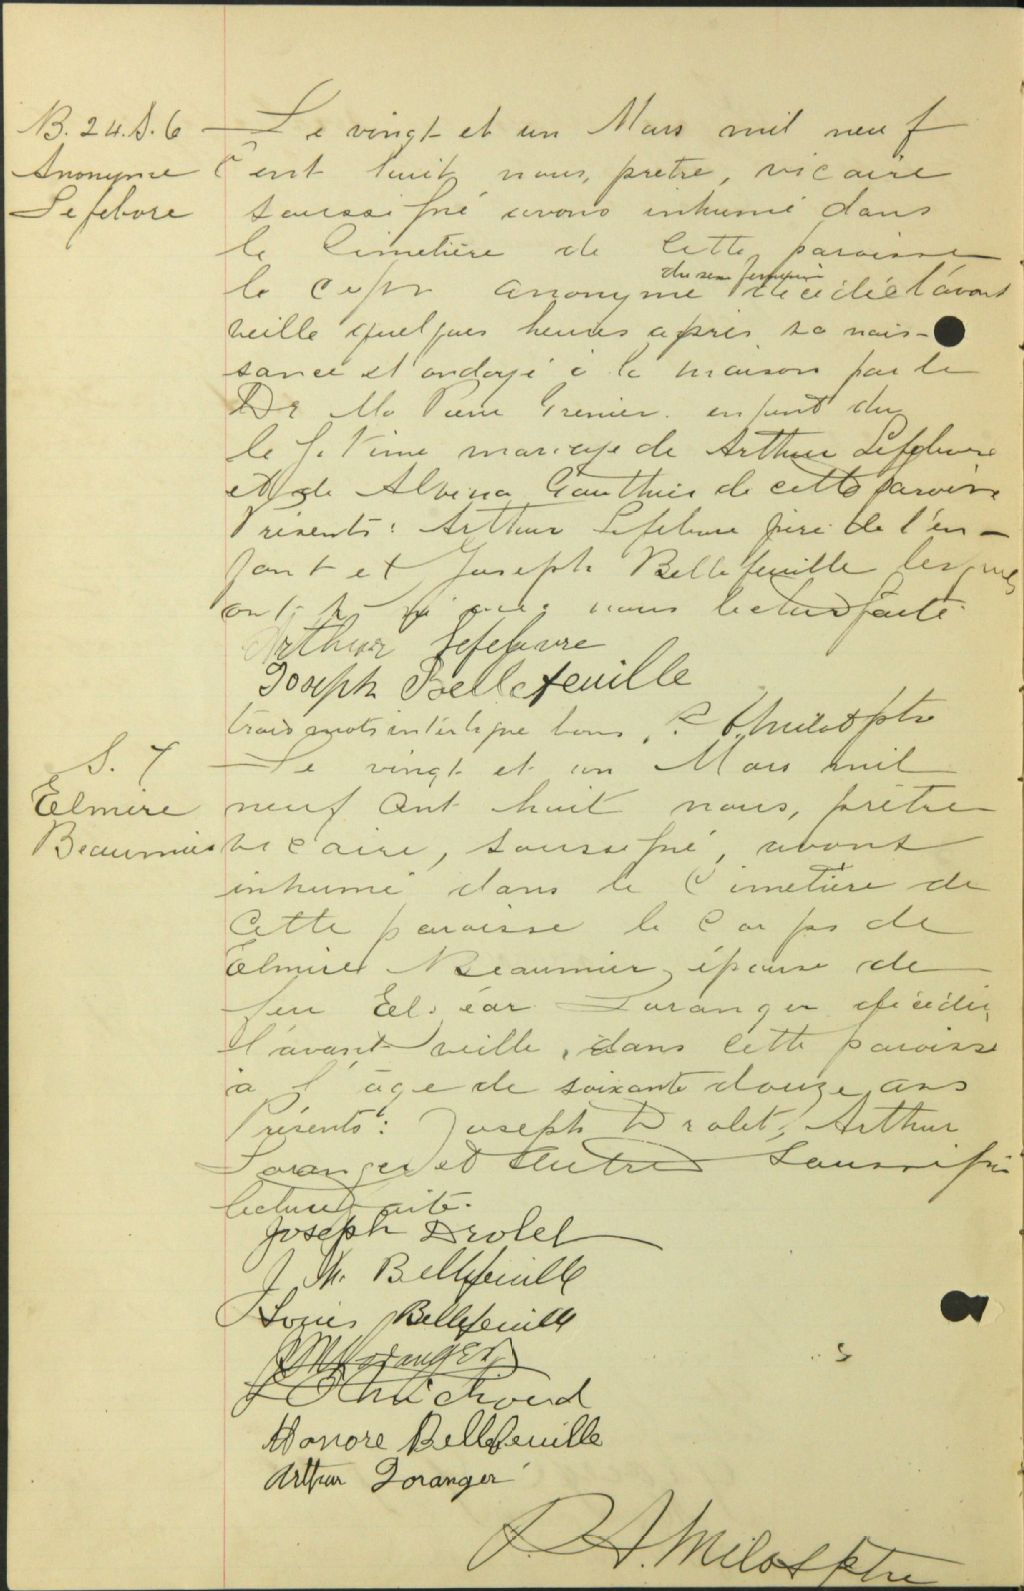 B. 24. S. 6
Anonyme
Lefebvre
Le vingt et un Mars mil neuf
Cent huit nous, prêtre, vicaire
soussigné avons inhumé dans
le Cimetière de Cette paroisse
du sexe feminin
le Corps anonyme décédée l'avant
veille quelques heures après sa nais-
sance et ondoyé à la maison par le
Dr Ma Pierre Grenier enfant du
légitime mariage de Arthur Lefebvre
et de Alvina Gauthier de cette paroisse
Présents: Arthur Lefebvre père de l'en-
fant et Joseph Bellefeuille lesquels
ont signé avec nous lecture faite.
Arthur Lefebvre
Joseph Bellefeuille
trois mots interligne bons. P. A. Milot Ptre
S. 7
Elmire
Beaumier
Le vingt et un Mars mil
neuf Cent huit nous, prêtre
vicaire, soussigné, avons
inhumé dans le Cimetière de
Cette paroisse le Corps de
Elmire Beaumier, épouse de
feu Elzéar Loranger décédée
l'avant veille, dans cette paroisse
à l'âge de soixante douze ans
Présents: Joseph Drolet, Arthur
Loranger et Autres Soussignés
lecture faite.
Joseph Drolet
J. M. Bellefeuille
Louis Bellefeuille
Loranger
Chs Richard
Honore Bellefeuille
Arthur Loranger
P. A. Milot Ptre